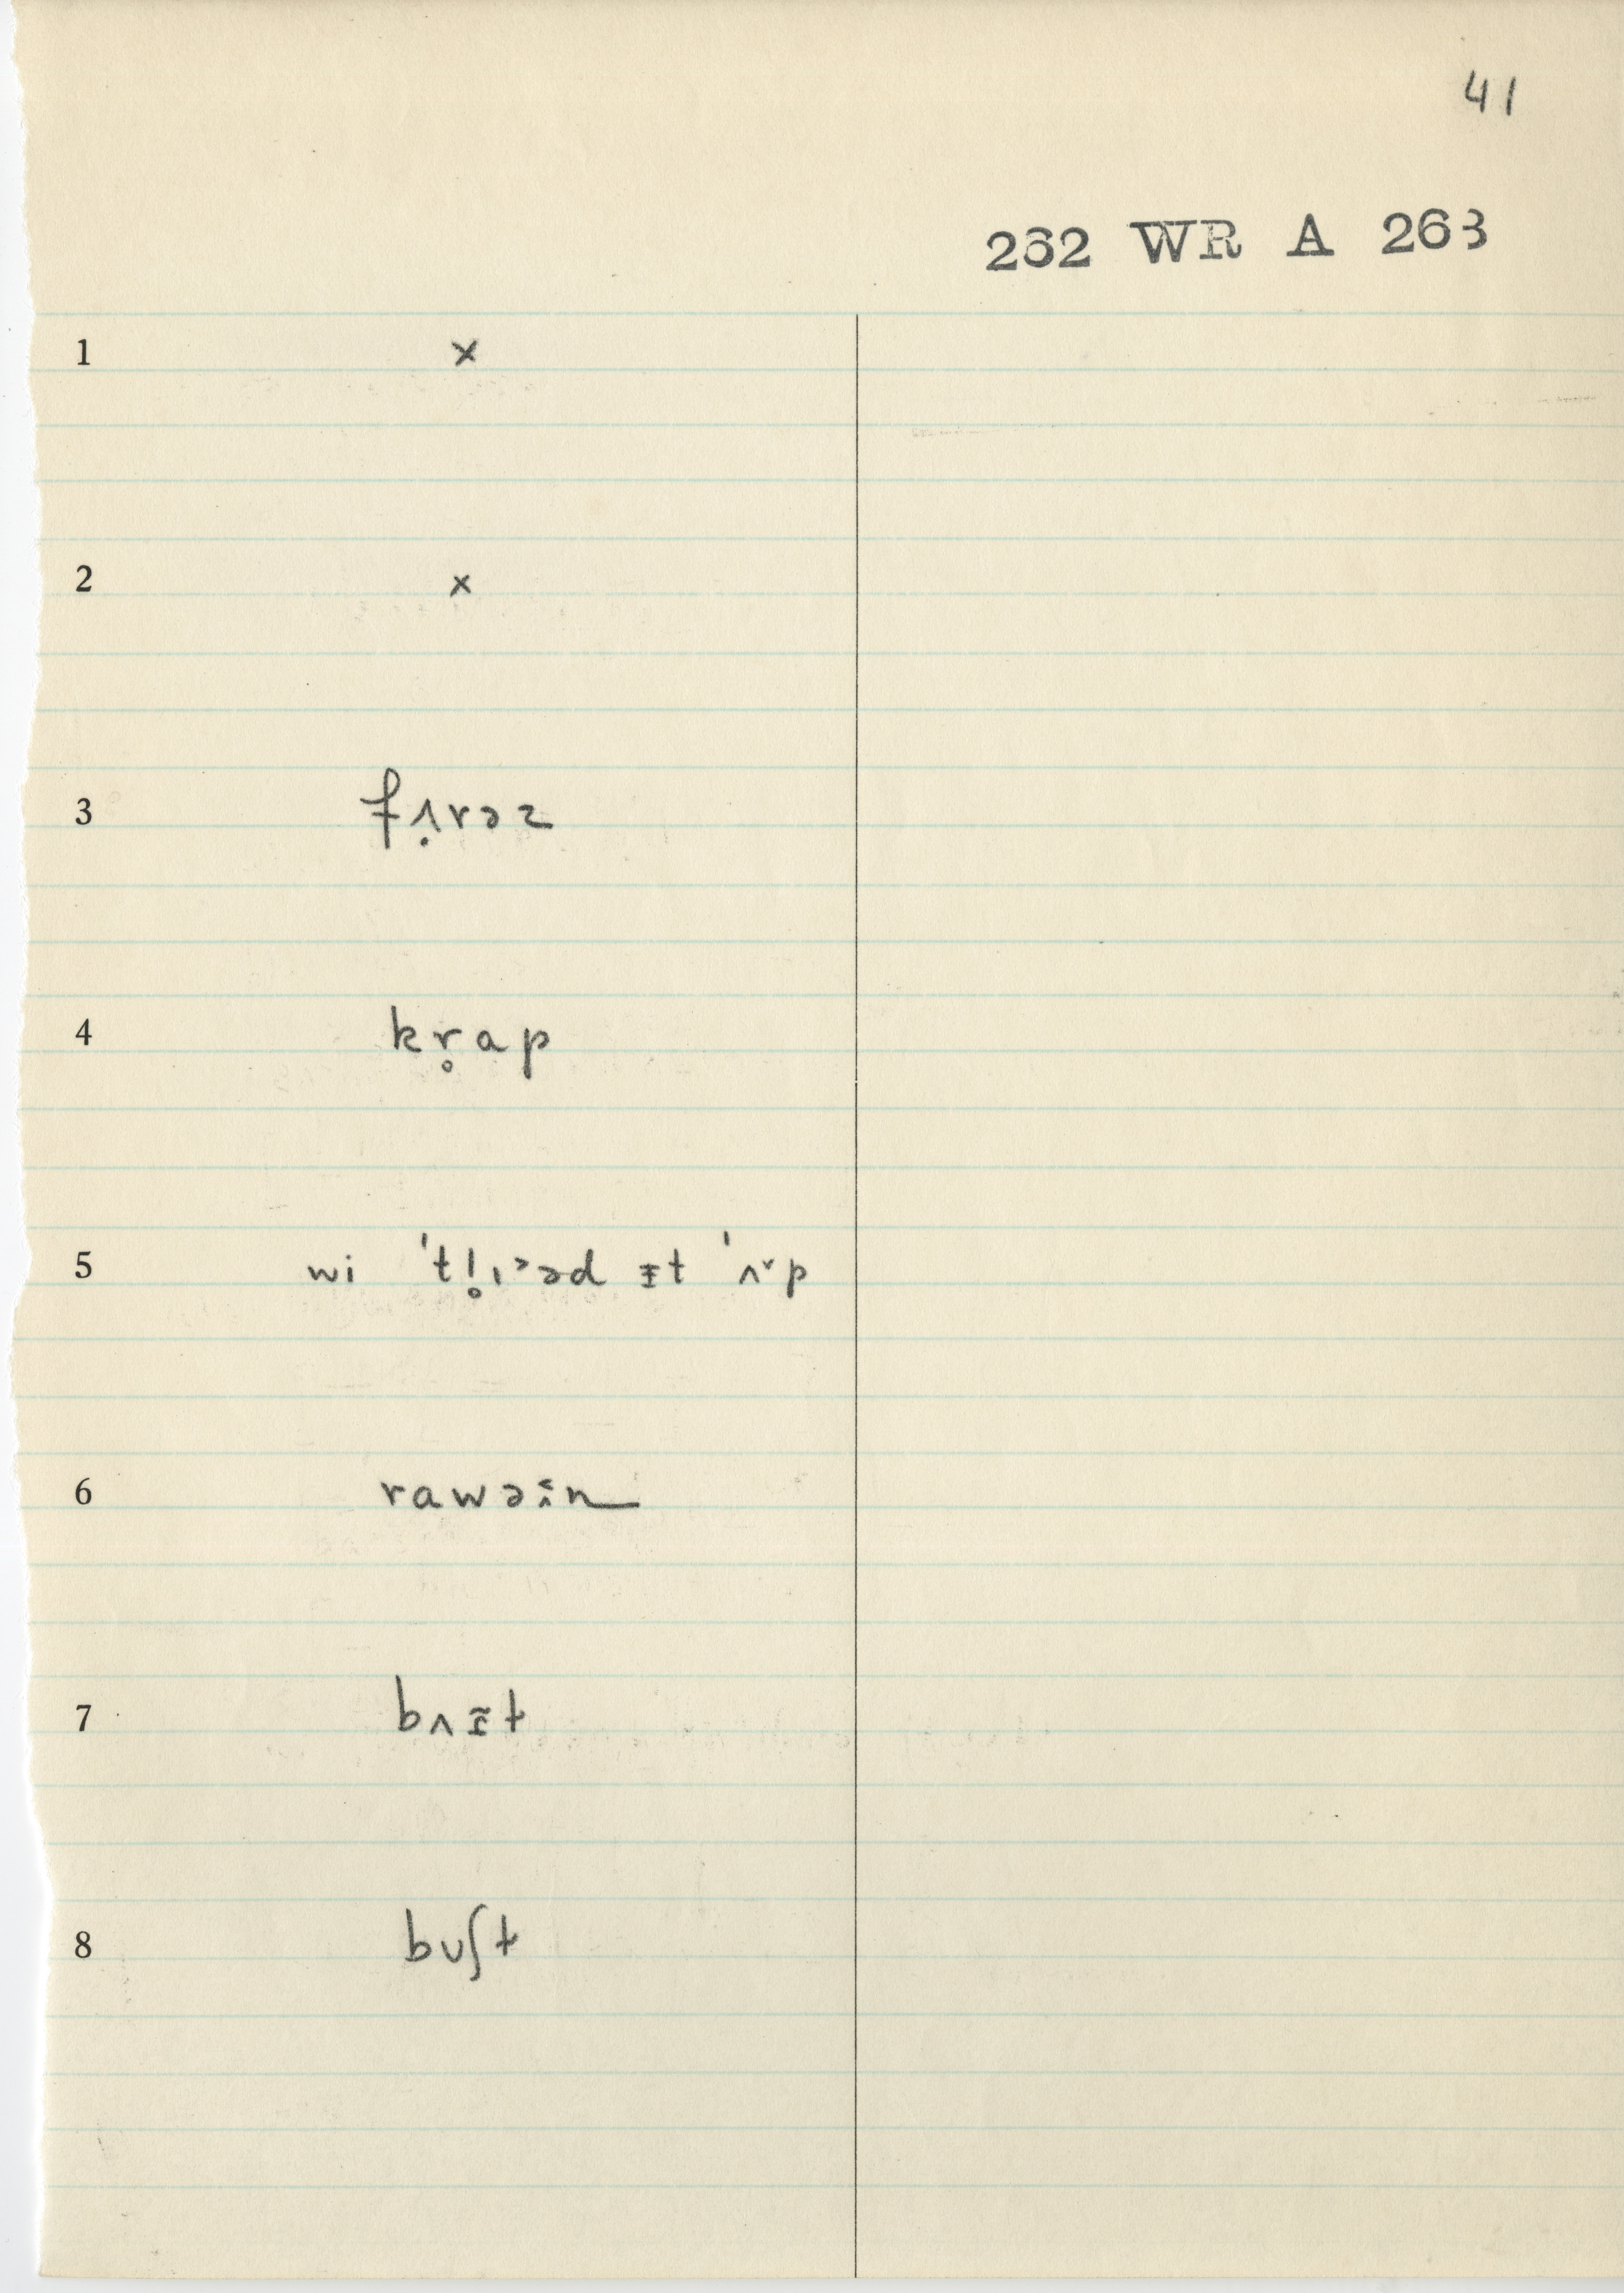 41
262 WR A 263
1 x
2 x
3 fʌ̣rəz
4 kr̥ap
5 wi ˈtl̥ɪᵊəd ɪt ˈʌˠp
6 rawəin
7 bʌɪ̃t
8 buʃt